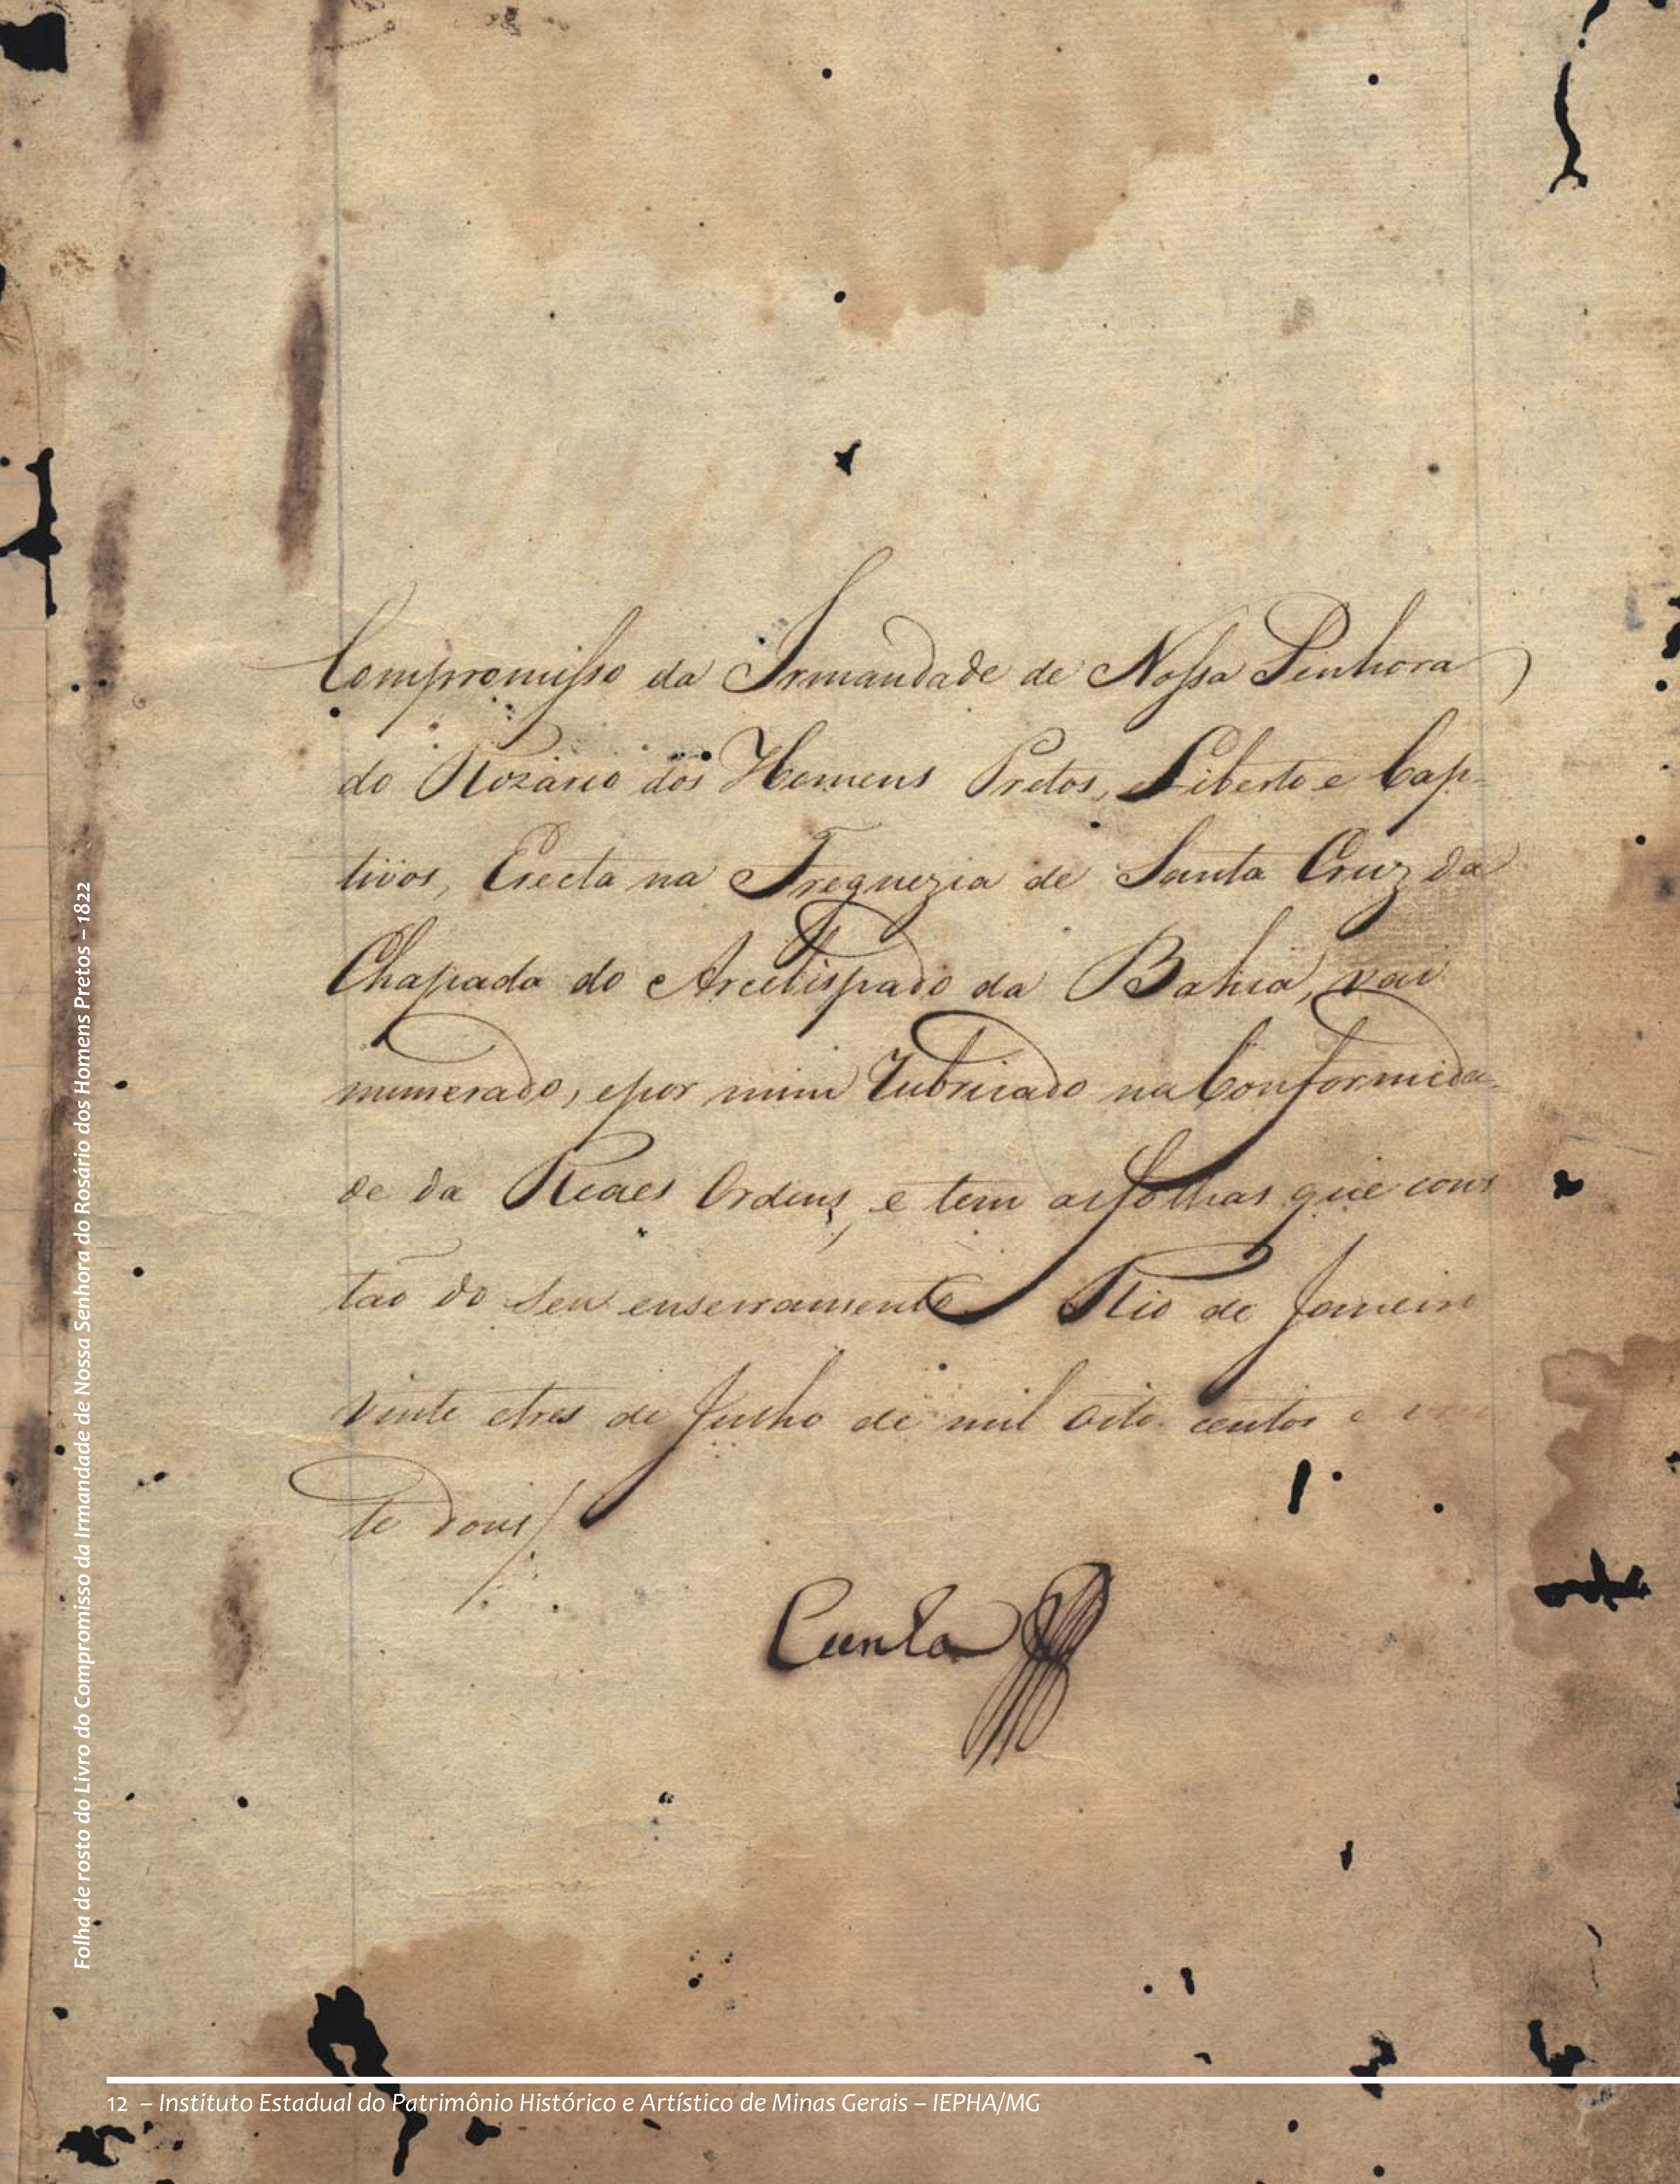 Compromisso da Irmandade de Nossa Senhora
do Rozario dos Homens Pretos, Liberto e Cap-
tivos, Erecta na Freguezia de Santa Cruz da
Chapada do Arcebispado da Bahia, vai
numerado, epor mim Rubricado na Conformida-
de da Reaes Ordens, e tem asfolhas que cons
tão do Seu enserramento. Rio de Janeiro
vinte etres de Julho de mil oito centos e
te dous
Cunha
Folha de rosto do Livro do Compromisso da Irmandade de Nossa Senhora do Rosário dos Homens Pretos – 1822
12 – Instituto Estadual do Patrimônio Histórico e Artístico de Minas Gerais – IEPHA/MG